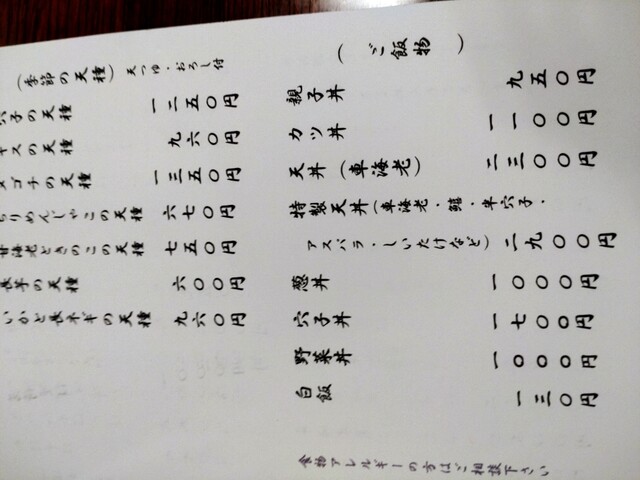 (季節の天種) 天つゆ・おろし付
穴子の天種 一二五〇円
キスの天種 九六〇円
メゴチの天種 一三五〇円
ちりめんじゃこの天種 六七〇円
甘海老ときのこの天種 七五〇円
長芋の天種 六〇〇円
いかと長ネギの天種 九六〇円
(ご飯物)
親子丼 九五〇円
カツ丼 一一〇〇円
天丼(車海老) 二三〇〇円
特製天丼(車海老・鱚・半穴子・
アスパラ・しいたけなど) 二九〇〇円
葱丼 一〇〇〇円
穴子丼 一七〇〇円
野菜丼 一〇〇〇円
白飯 一三〇円
食物アレルギーの方はご相談下さい